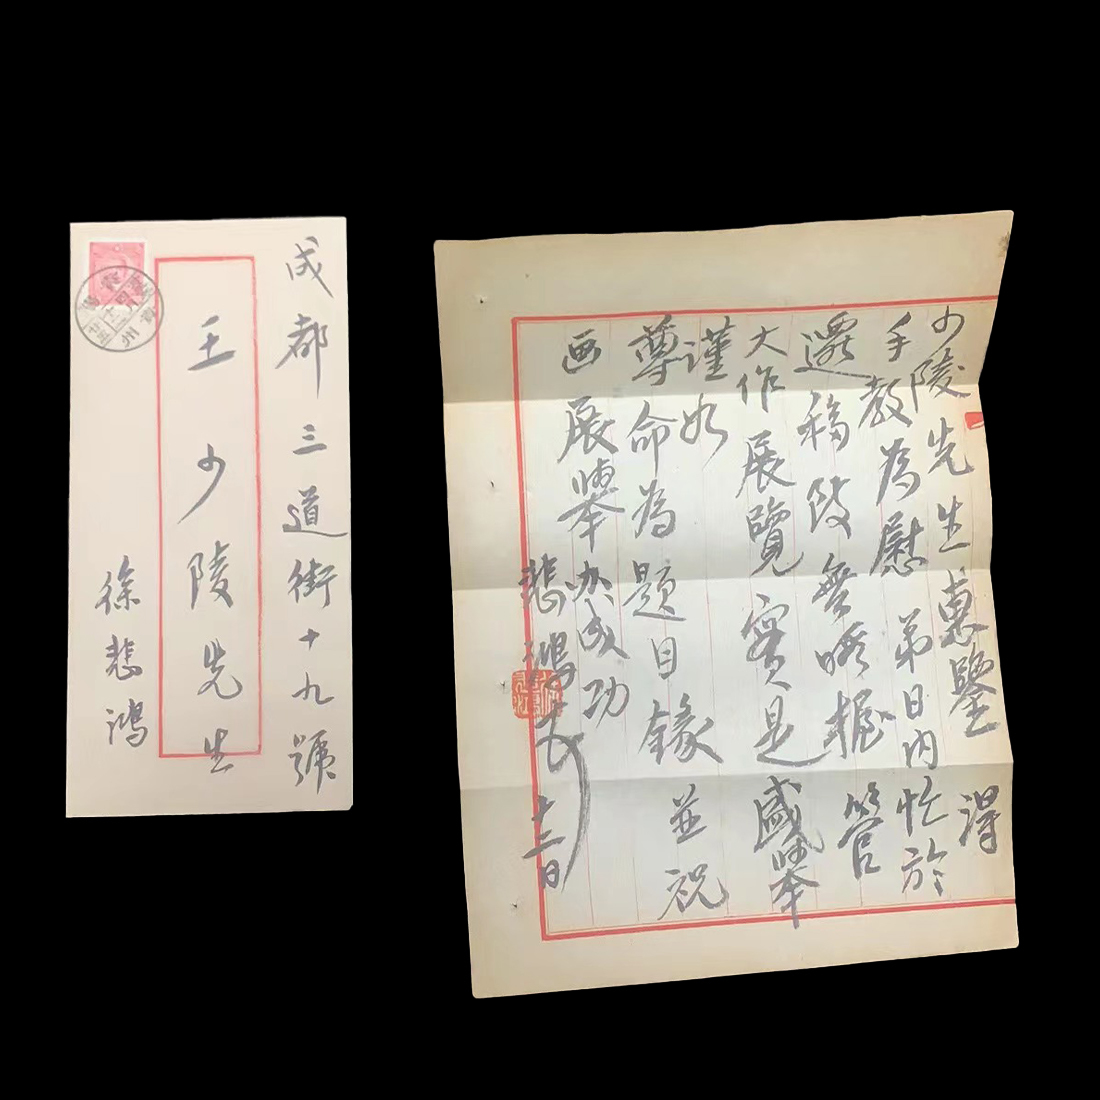 成都三道街十九號
王少陵先生
徐悲鴻
貴州
少陵先生惠鑒 得
手教為慰 弟日內忙於
遷移故無暇握管
大作展覽實是盛舉
謹如
尊命為題目錄並祝
画展舉办成功
悲鴻 十二日